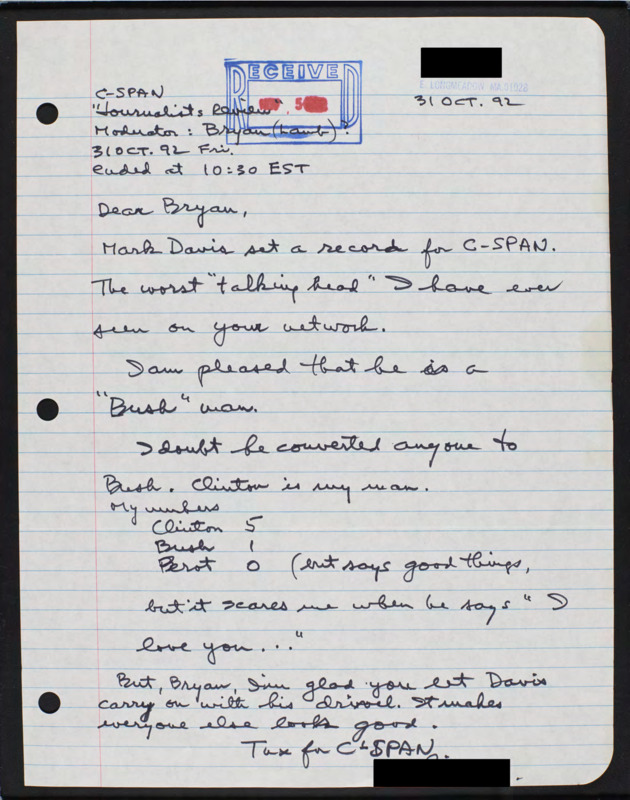 RECEIVED
E. LONGMEADOW MA 01028
31 OCT. 92
C-SPAN
"Journalists Review"
Moderator: Bryan (Lamb)?
31 OCT. 92 Fri.
ended at 10:30 EST
Dear Bryan,
Mark Davis set a record for C-SPAN.
The worst "talking head" I have ever
seen on your network.
I am pleased that he is a
"Bush" man.
I doubt he converted anyone to
Bush. Clinton is my man.
My numbers
Clinton 5
Bush 1
Perot 0 (but says good things,
but it scares me when he says "I
love you..."
But, Bryan, I'm glad you let Davis
carry on with his drivvil. It makes
everyone else look good.
for C-SPAN